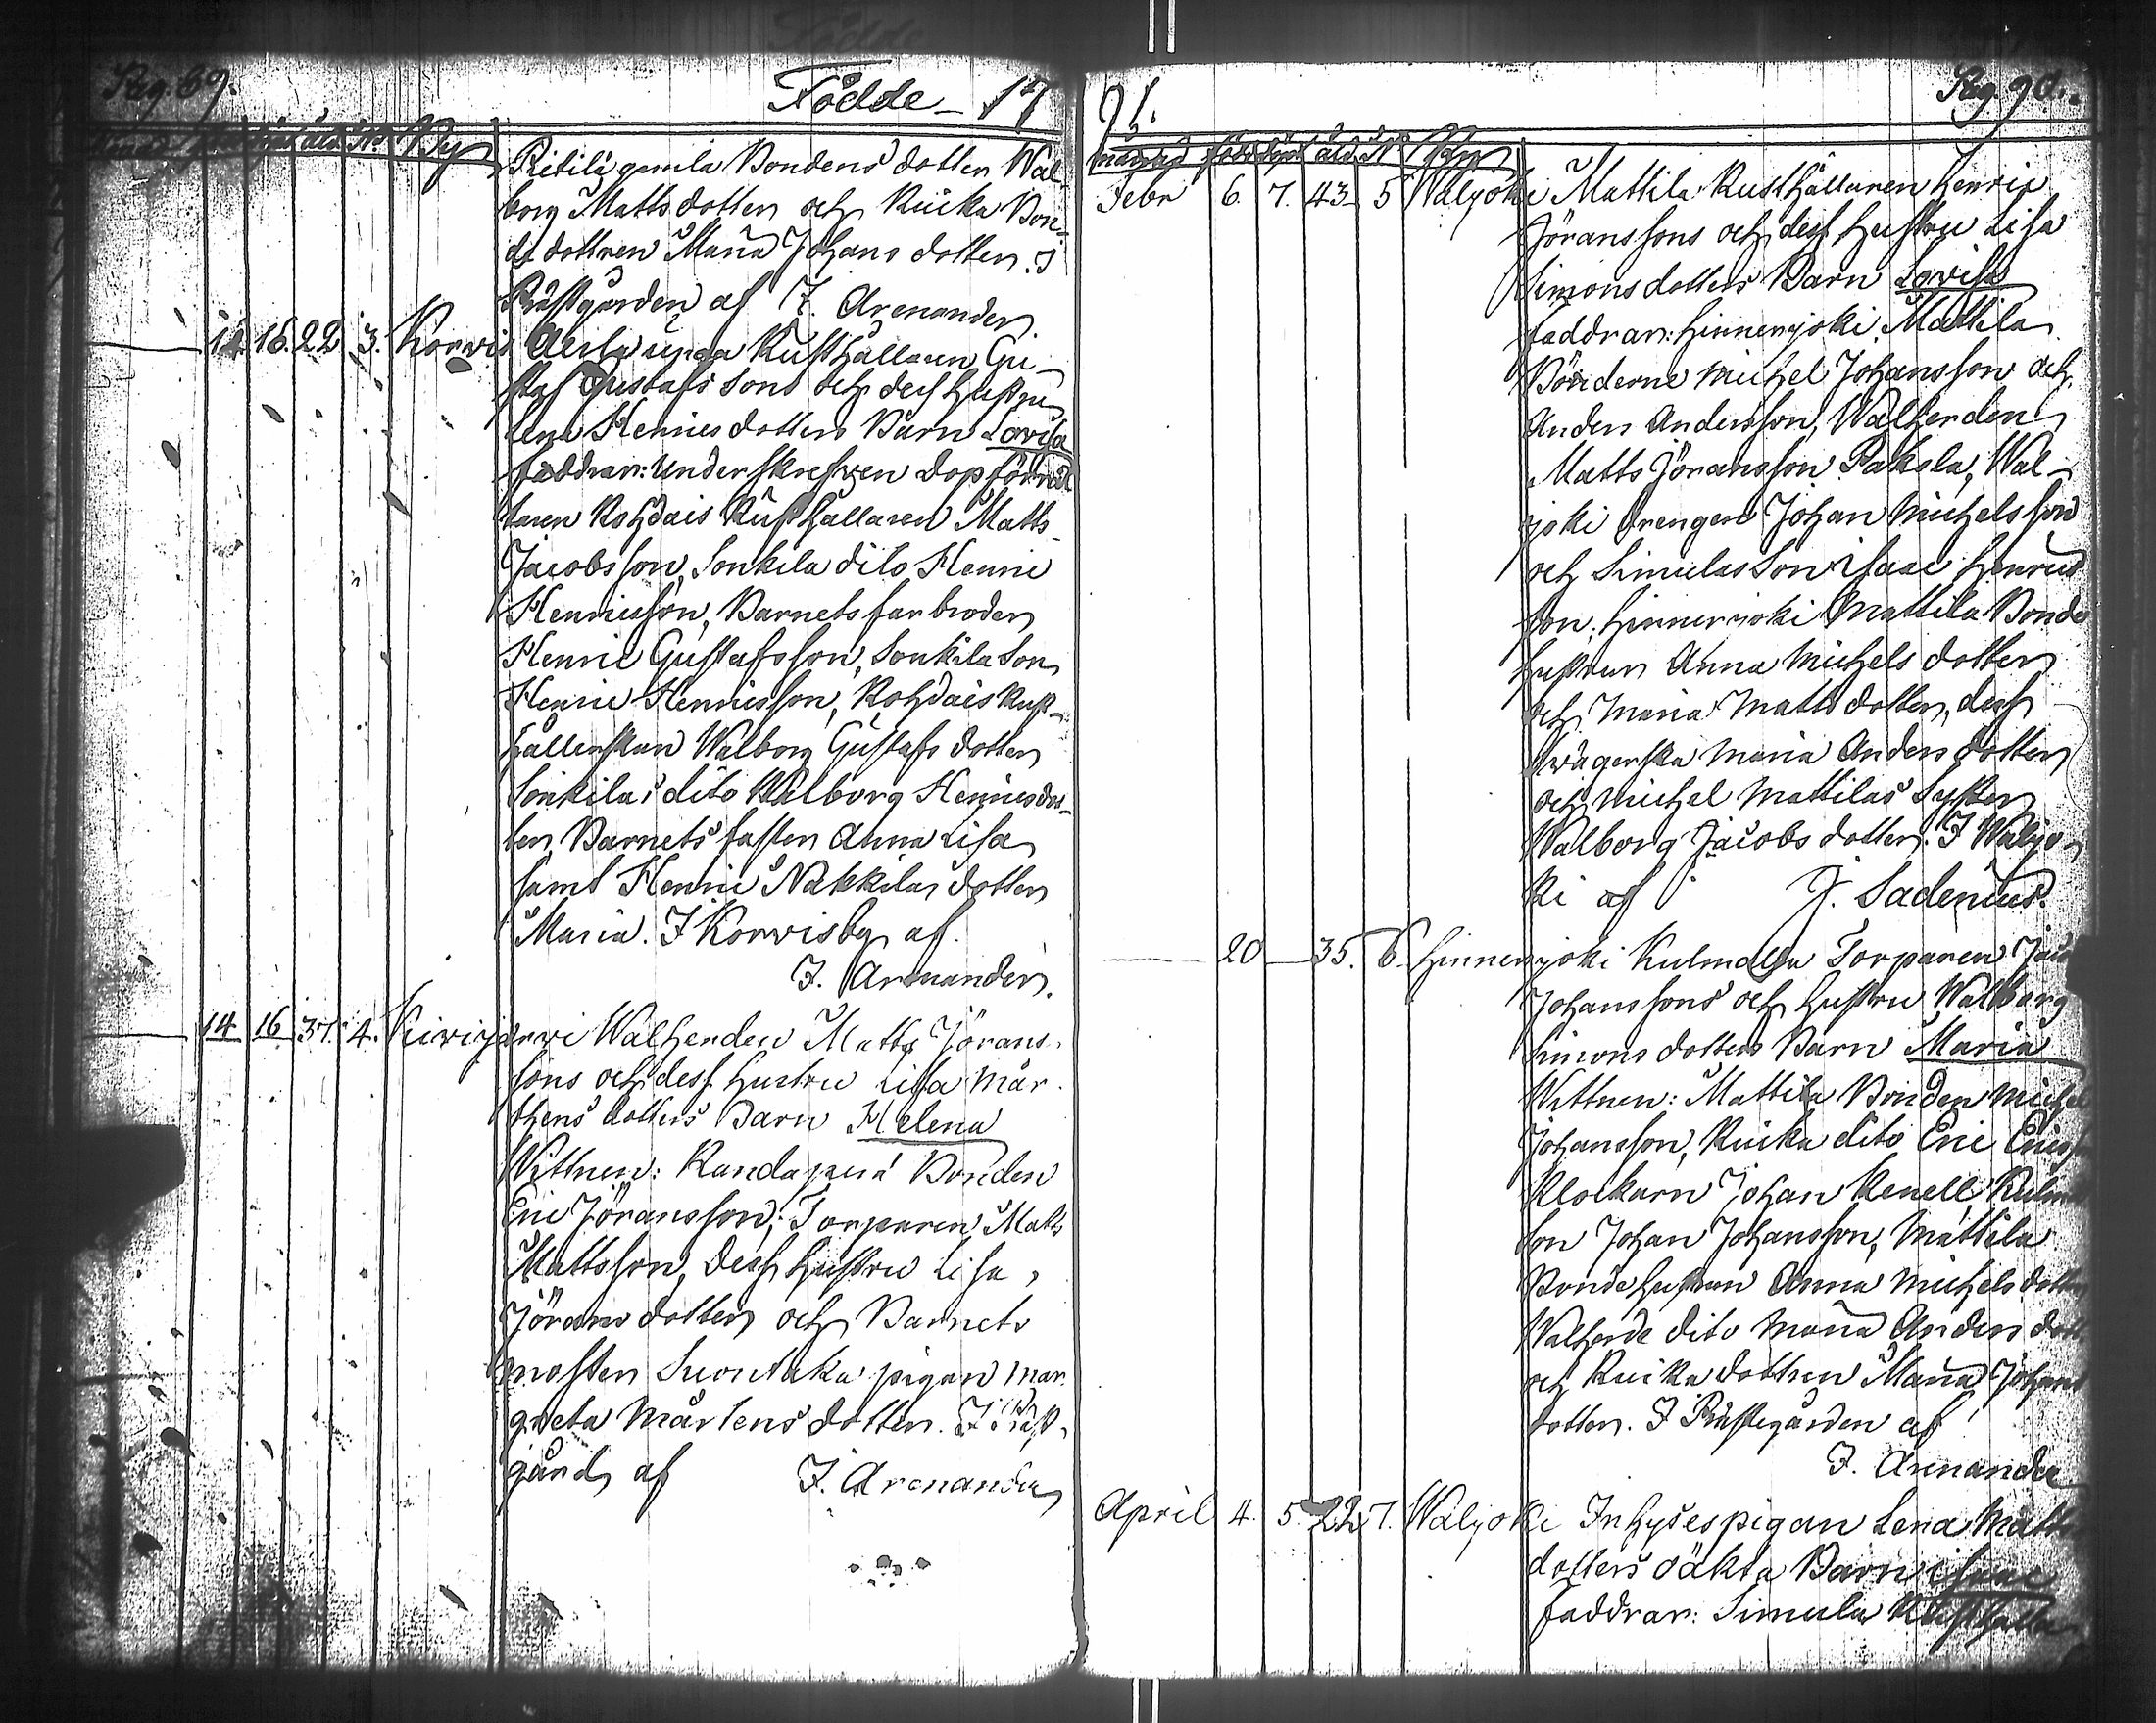 Pag. 89.
Födde - 17
By
Pietilä gamla Bondens dotter Wal-
borg Mattsdotter och Kuika Bon-
de dottren Maria Johans dotter. I
Prästgården af J. Arenander.
14 16. 22 3. Korwis Alila unga Rusthållaren Gu-
staf Gustafs sons och dess hustru
Lena Henricsdotters Barn Lovisa
faddrar: Underskrefven dopförrät
taren Kohdais Rusthållaren Matts
Jacobsson, Sonkila dito Henric
Henricsson, Barnets farbroder
Henric Gustafsson, Sonkila Son
Henric Henricsson, Kohdais Rust-
hållerskan Walborg Gustafs dotter
Sonkilas dito Walborg Henricsdot-
ter, Barnets faster Anna Lisa
samt Henric Nakkilas dotter
Maria. I Korwisby af
J. Arenander.
14 16 37. 4. Kiwijärwi Walhenden Matts Jörans-
sons och dess hustru Lisa Mår-
thens dotters Barn Helena
Wittnen: Kandapää Bonden
Eric Jöransson, Torparen Matts
Mattsson, dess hustru Lisa
Jörans dotter och Barnets
moster Suontaka pigan Mar-
greta Mårtens dotter. I Präst-
gård af J. Arenander
91.
Pag. 90.
månad föds döpt ald N By
Febr 6. 7. 43 5 Waljoki Mattila Rusthållaren Henric
Jöranssons och dess hustru Lisa
Simonsdotters Barn Lovisa
faddrar: Hinnerjoki Mattila
Bönderne Michel Johansson och
Anders Andersson, Walhenden
Matts Jöransson Paksla, Wal-
joki Drengen Johan Michelsson
och Simulas Son Isaac Henrics
son, Hinnerjoki Mattila Bonde
hustrun Anna Michels dotter
och Maria Matts dotter, dess
swägerska Maria Anders dotter
och Michel Mattilas Syster
Walborg Jacobs dotter. I Waljo-
ki af J. Sadenius.
20 35. 6. Hinnerjoki Kulmala Torparen
Johanssons och hustru Walborg
Simons dotters Barn Maria
Wittnen: Mattila Bonden Michel
Johansson, Kuika dito Eric Erics
Klockarn Johan Renell,
Son Johan Johansson, Mattila
Bondehustrun Anna Michels dotter
Walhende dito Maria Anders dott
och Kuika dottren Maria Johans
dotter. I Prästegården af
J. Arenander
April 4. 5. 22 7. Waljoki Inhysespigan Lena Matts
dotters oäkta Barn Isaac
Faddrar: Simula Rusthålla